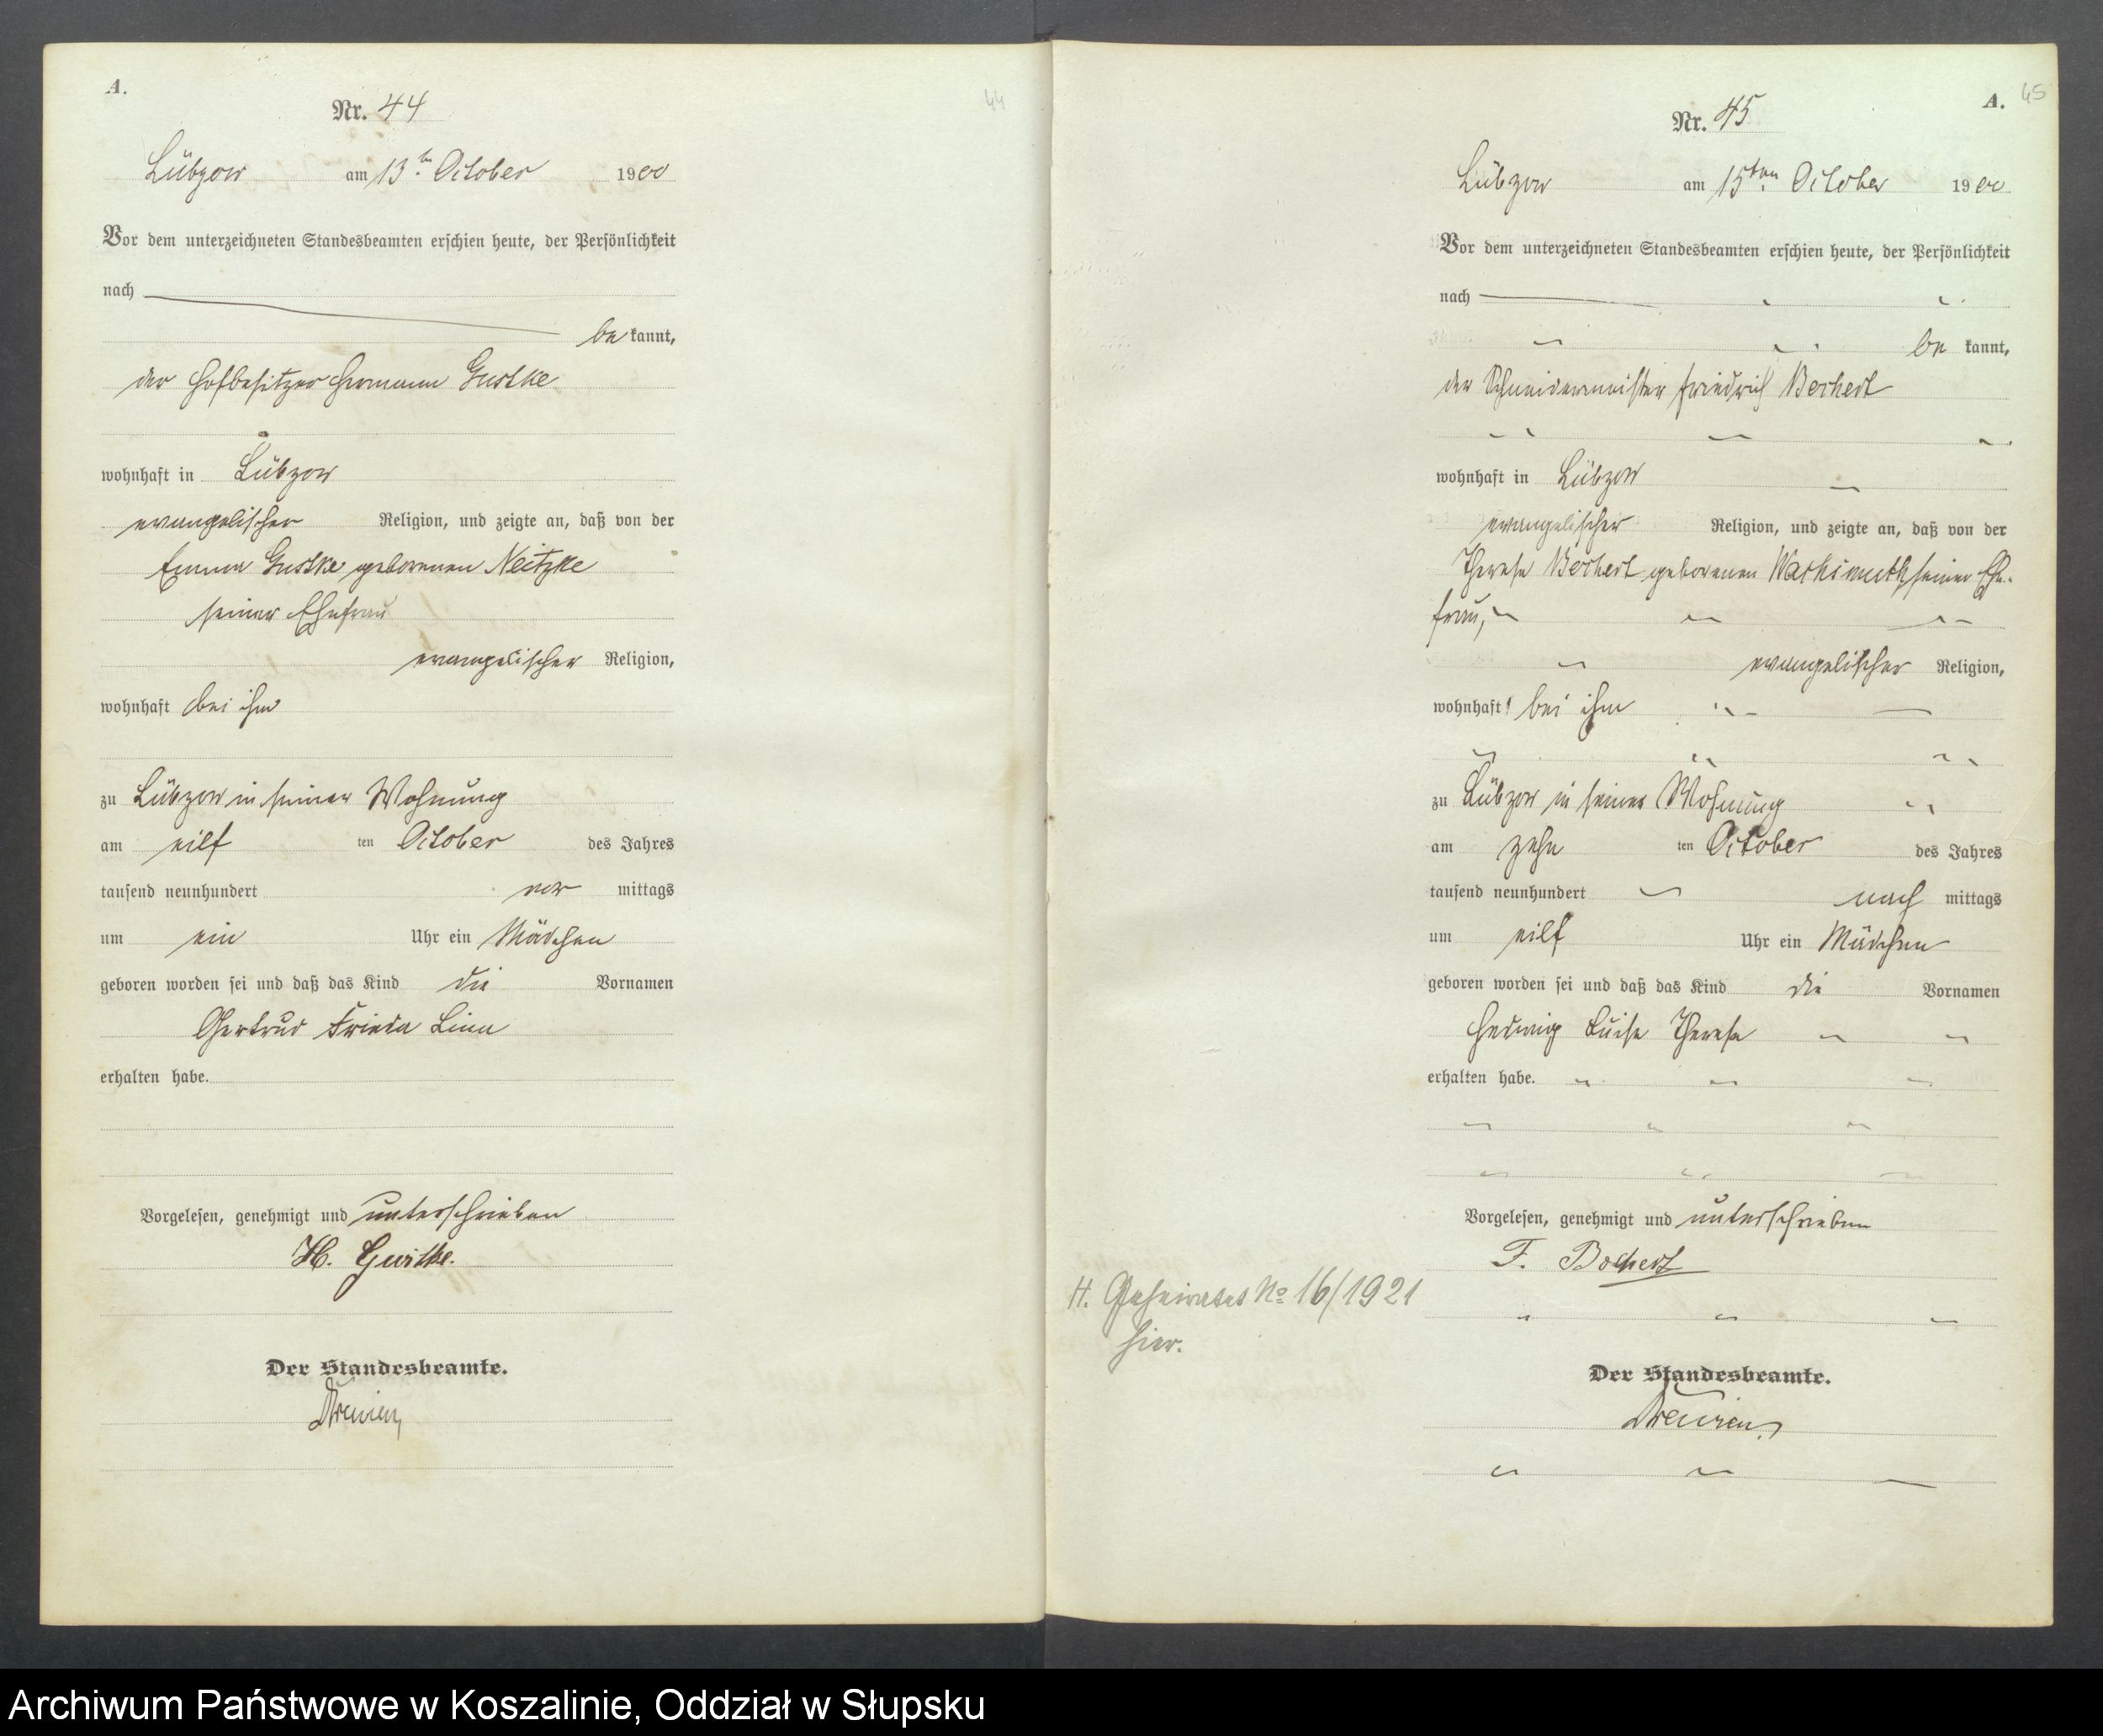 A.
44
Nr. 44
Lübzow am 13ten October 1900
Vor dem unterzeichneten Standesbeamten erschien heute, der Persönlichkeit
nach
be kannt,
der Hofbesitzer Hermann Gustke
wohnhaft in Lübzow
evangelischer Religion, und zeigte an, daß von der
Emma Gustke geborenen Neitzke
seiner Ehefrau
evangelischer Religion,
wohnhaft bei ihm
zu Lübzow in seiner Wohnung
am eilf ten October des Jahres
tausend neunhundert vor mittags
um ein Uhr ein Mädchen
geboren worden sei und daß das Kind die Vornamen
Gertrud Frieda Lina
erhalten habe.
Vorgelesen, genehmigt und unterschrieben
H. Gustke.
Der Standesbeamte.
A. 45
Nr. 45
Lübzow am 15ten October 1900
Vor dem unterzeichneten Standesbeamten erschien heute, der Persönlichkeit
nach
be kannt,
der Schneidermeister Friedrich Bochert
wohnhaft in Lübzow
evangelischer Religion, und zeigte an, daß von der
Therese Bochert geborenen Wachsmuth seiner Ehe-
frau,
evangelischer Religion,
wohnhaft bei ihm
zu Lübzow in seiner Wohnung
am zehn ten October des Jahres
tausend neunhundert nach mittags
um eilf Uhr ein Mädchen
geboren worden sei und daß das Kind die Vornamen
Hedwig Luise Therese
erhalten habe.
Vorgelesen, genehmigt und unterschrieben
F. Bochert
H. Geheiratet No 16/1921
hier.
Der Standesbeamte.
Archiwum Państwowe w Koszalinie, Oddział w Słupsku